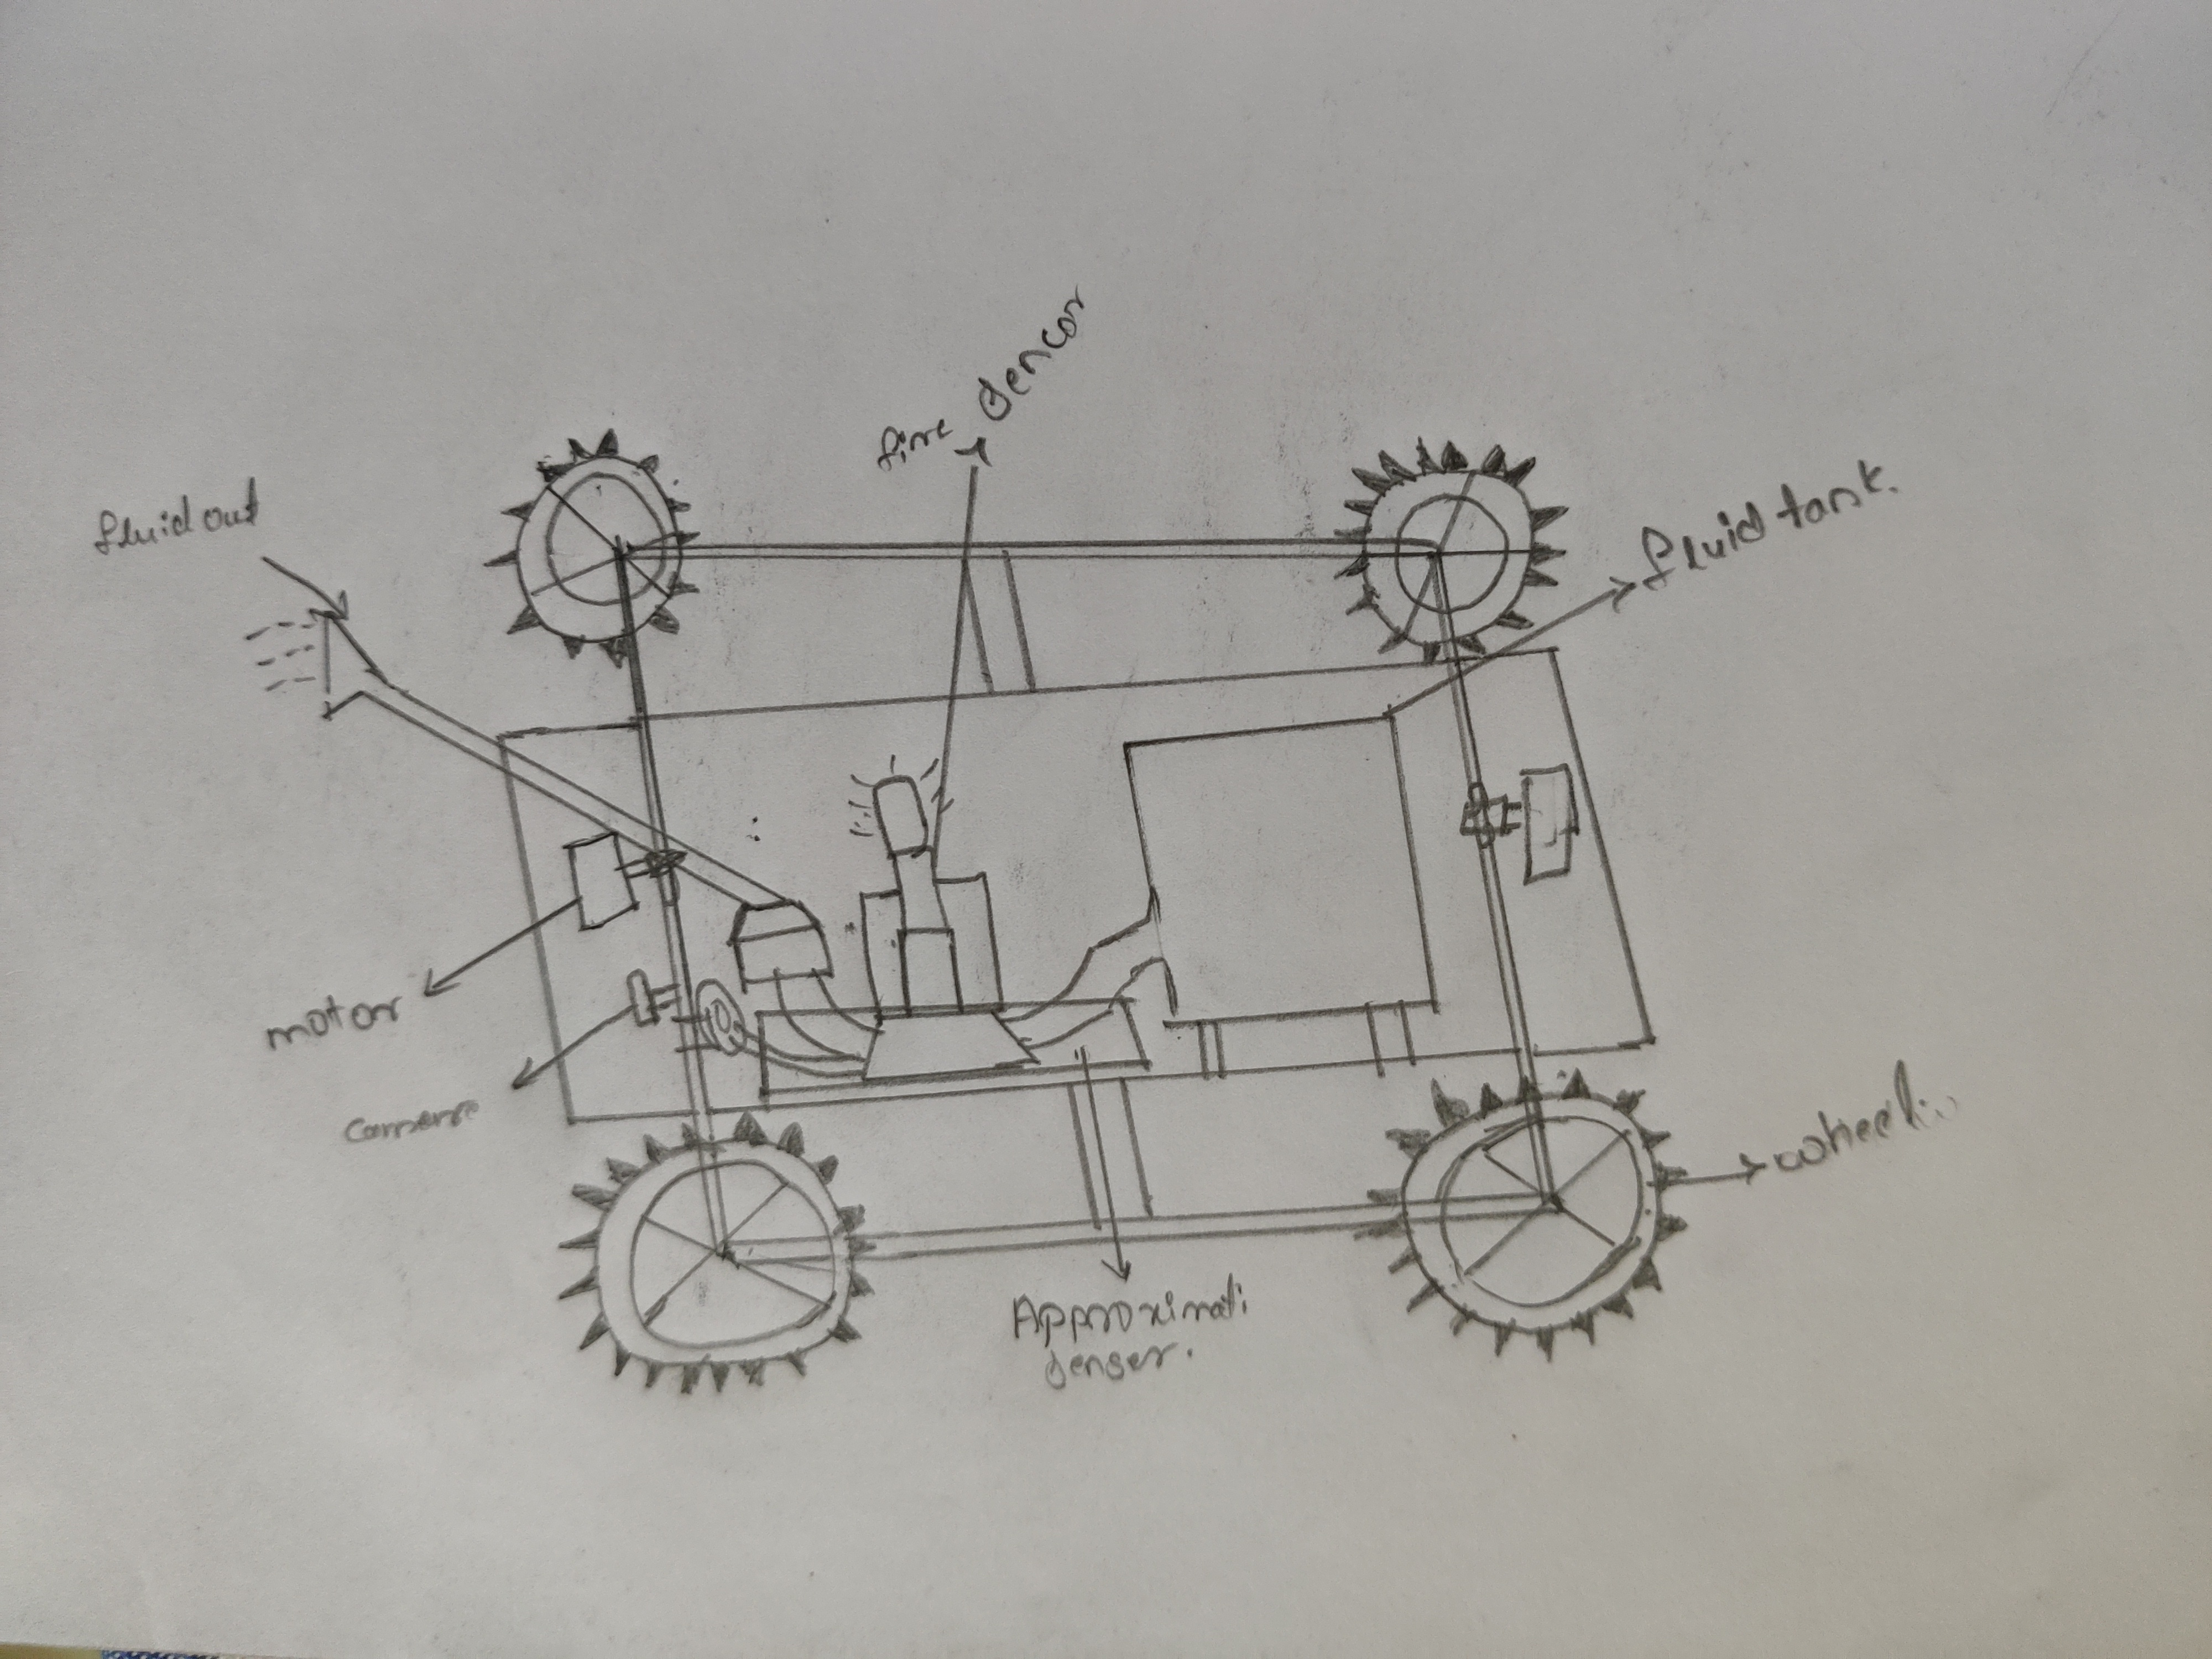 fire sencor
fluid out
fluid tank.
motor
camera
wheel
Approximati
senser.